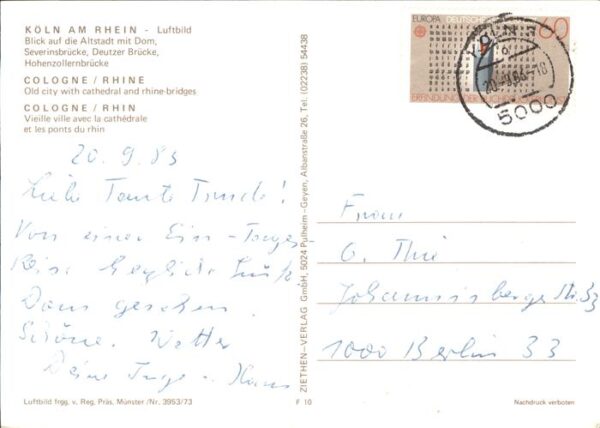 KÖLN AM RHEIN - Luftbild
Blick auf die Altstadt mit Dom,
Severinsbrücke, Deutzer Brücke,
Hohenzollernbrücke
COLOGNE / RHINE
Old city with cathedral and rhine-bridges
COLOGNE / RHIN
Vieille ville avec la cathédrale
et les ponts du rhin
20.9.83
Liebe Tante Trude!
Von einer Ein-Tages-
Reise herzliche
Dom gesehen.
Schönes Wetter
Deine Inge + Hans
Luftbild frgg. v. Reg. Präs. Münster /Nr. 3953/73
ZIETHEN-VERLAG GmbH, 5024 Pulheim-Geyen, Albanstraße 26, Tel. (02238) 54438
F 10
EUROPA DEUTSCHE 60
ERFINDUNG DER BUCH
KÖLN
20.-9.83-18
5000
Frau
G.
Johannisberger Str. 33
1000 Berlin 33
Nachdruck verboten